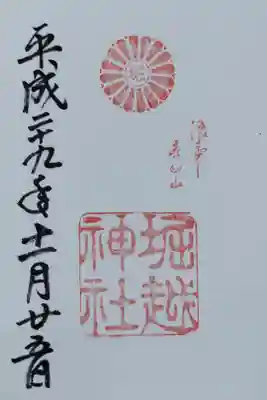 堀越
神社
平成二十九年十一月廿五日